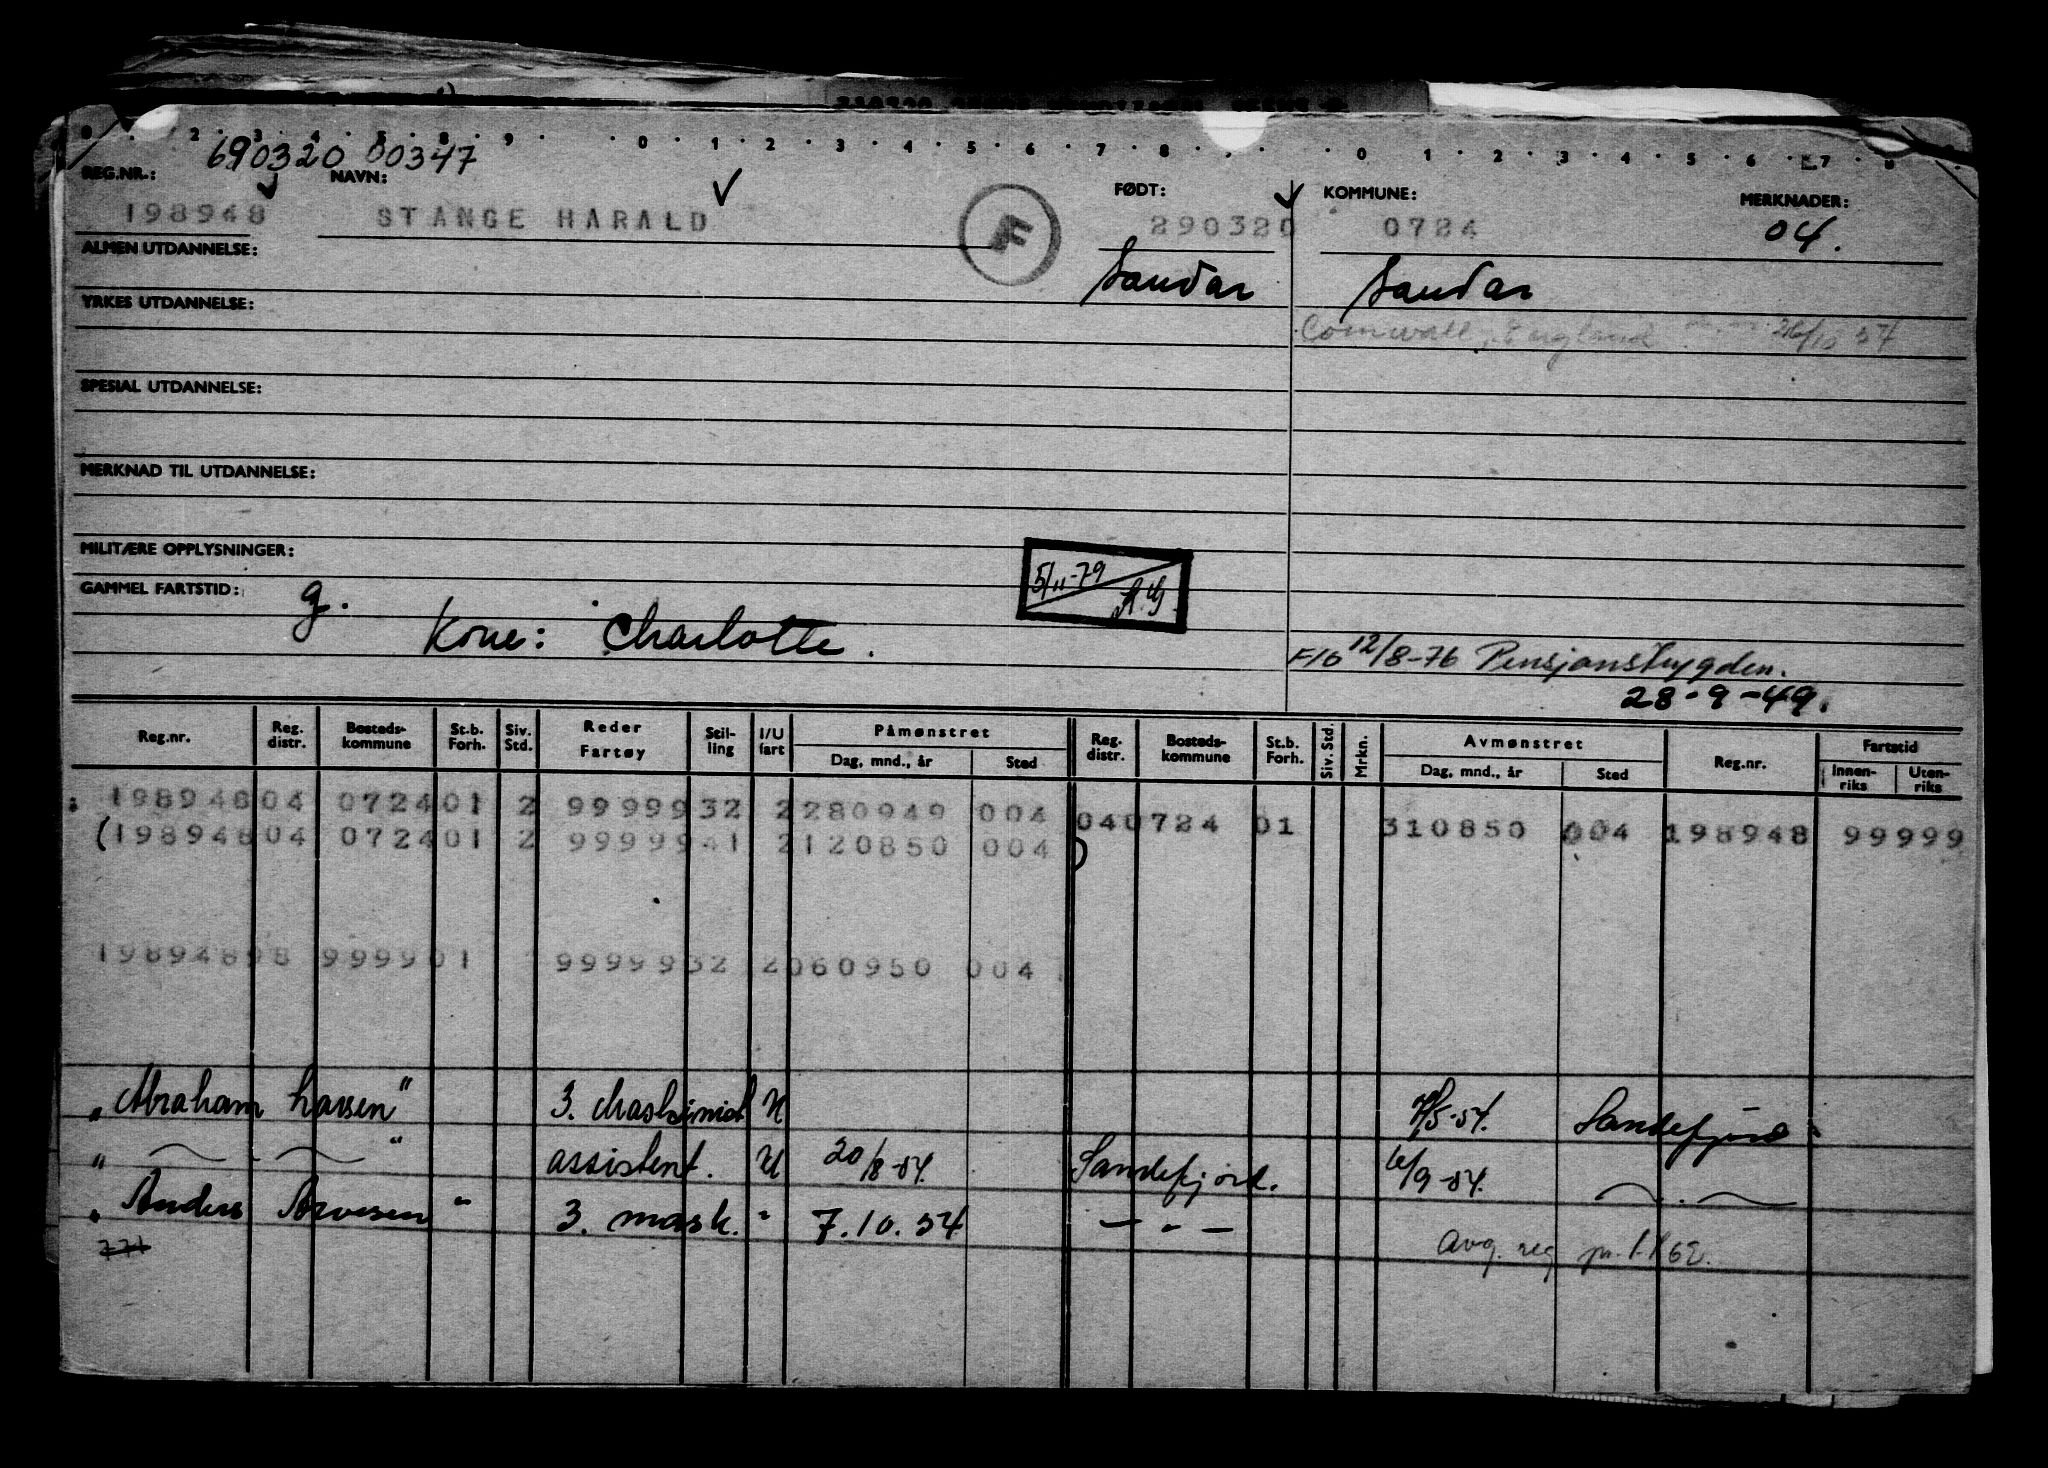 0 2 3 4 5 8 9 0 1 2 3 4 5 6 7 8 0 1 2 3 4 5 6 7 8
690320 00347
REG.NR.: NAVN: FØDT: KOMMUNE: MERKNADER:
198948 STANGE HARALD F 290320 0724 04.
ALMEN UTDANNELSE: Sandar Sandar
YRKES UTDANNELSE: Cornwall, England 26/10 57
SPESIAL UTDANNELSE:
MERKNAD TIL UTDANNELSE:
MILITÆRE OPPLYSNINGER:
5/11-79
GAMMEL FARTSTID: g.
Kone: Charlotte.
F/O 12/8-76 Pensjonstrygden.
28-9-49.
Reg.nr. Reg. distr. Bosteds-kommune St.b. Forh. Siv. Std. Reder Fartøy Stil-ling I/U fart Påmønstret Dag, mnd., år Sted Reg. distr. Bosteds-kommune St.b. Forh. Siv. Std. Mrkn. Avmønstret Dag, mnd., år Sted Reg.nr. Fartstid Innen-riks Uten-riks
198948 04 0724 01 2 99999 32 2 280949 004 04 0724 01 310850 004 198948 99999
(198948 04 0724 01 2 99999 41 2 120850 004 )
198948 98 9999 01 99999 32 2 060950 004
"Abraham Larsen" 3. Maskinist U 7/5-54. Sandefjord
" — . — " assistent. U 20/8-54. Sandefjord. 6/9-54. — . . —
"Anders Arvesen" 3. mask. " 7.10.54 — " —
771 Avg. reg pr. 1.1 62.